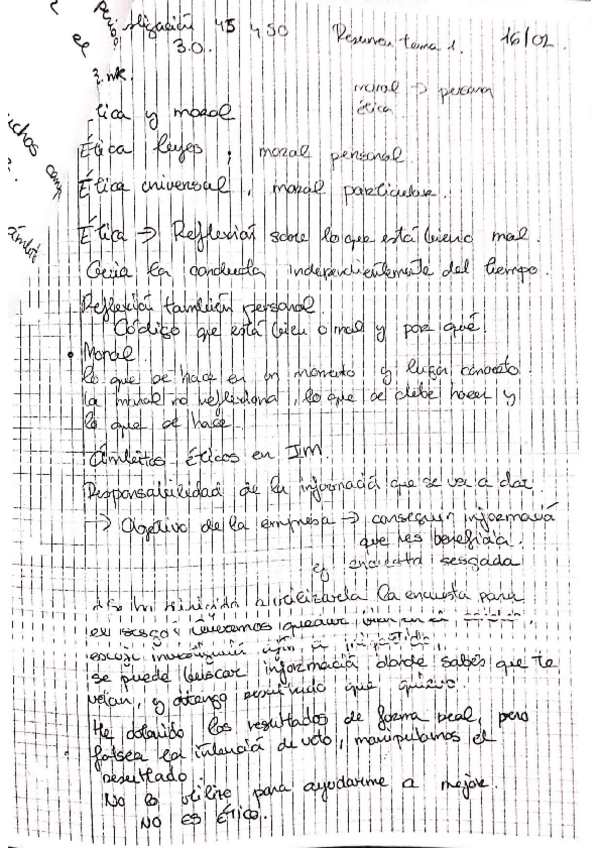 45 450
3.0.
Resumen tema 1. 16/02.
moral → persona
ética
ética y moral
Ética leyes ; moral personal
Ética universal , moral particular.
Ética → Reflexión sobre lo que está bueno mal.
Guia la conducta independientemente del tiempo.
Reflexión también personal
Código que está bien o mal y por qué.
• Moral
lo que se hace en un momento y lugar concreto
la moral no reflexiona, lo que se debe hacer y
lo que se hace
Ámbitos éticos en Im.
Responsabilidad de la información que se va a dar
→ Objetivo de la empresa → conseguir información
que les beneficia.
ej encuesta sesgada
la encuesta para
se puede buscar información donde sabes que te
votan, y obtengo resultado que quiero.
He obtenido los resultados de forma real, pero
falsea la intención de voto, manipulamos el
resultado.
No lo utilizo para ayudarme a mejor.
No es ético.